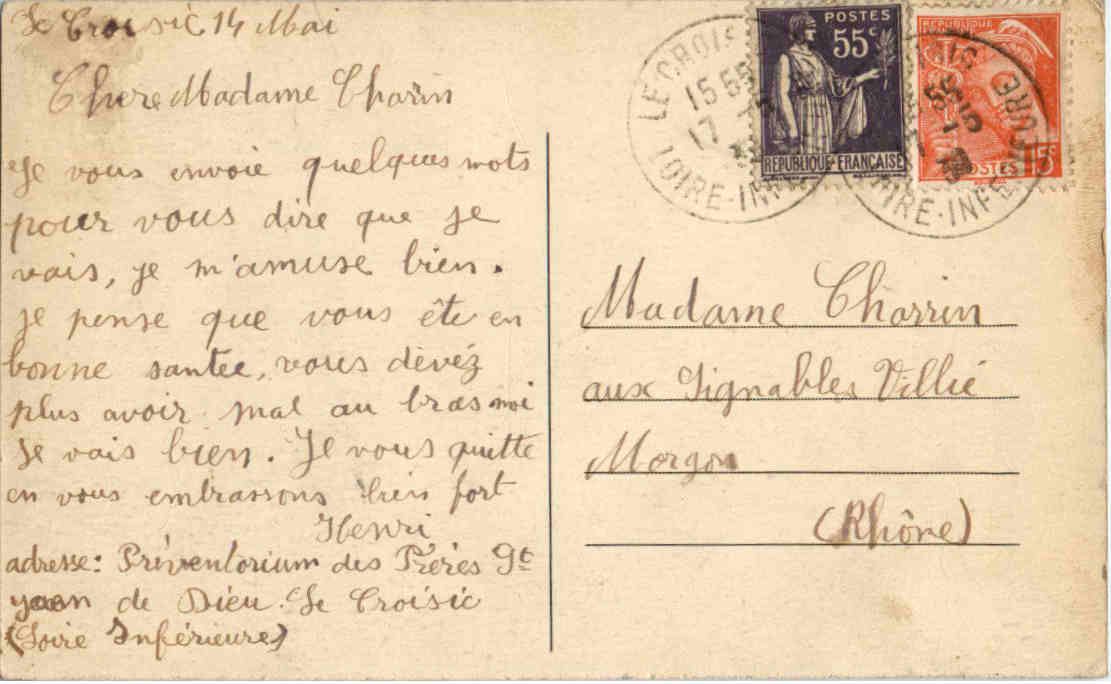 Le Croisic 14 Mai
Chere Madame Charin
Je vous envoie quelques mots
pour vous dire que je
vais, je m'amuse bien.
je pense que vous ête en
bonne santee, vous dévéz
plus avoir mal au bras moi
je vais bien. Je vous quitte
en vous embrassons bien fort
Henri
adresse: Préventorium des Frères St
de Dieu. Le Croisic
(Loire Inférieure)
LE CROIS
15 55
17
LOIRE-INF
POSTES
55c
REPUBLIQUE FRANÇAISE
REPUBLIQUE
POSTES
15c
OIRE-INF
Madame Charrin
aux Signables Villié
Morgon
(Rhône)